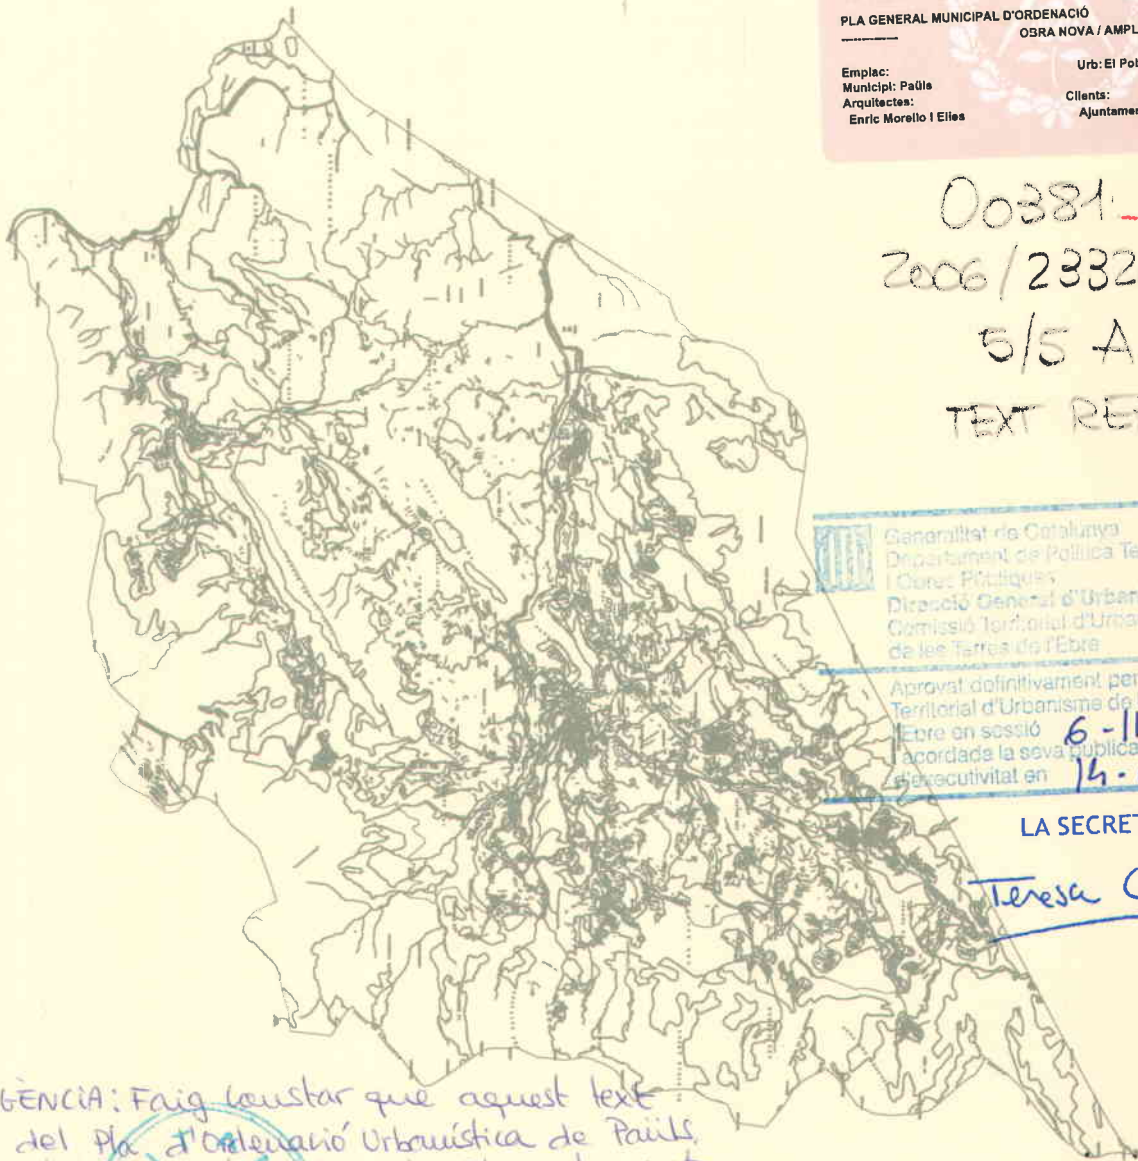 PLA GENERAL MUNICIPAL D'ORDENACIÓ
OBRA NOVA / AMPL
Emplac:
Urb: El Pob
Municipi: Paüls
Arquitectes:
Clients:
Enric Morello i Elies
Ajuntamen
00381
2006/2332
5/5 A
TEXT RE
Generalitat de Catalunya
Departament de Política Te
i Obres Públiques
Direcció General d'Urban
Comissió Territorial d'Urba
de les Terres de l'Ebre
Aprovat definitivament per
Territorial d'Urbanisme de
l'Ebre en sessió 6-11
acordada la seva publica
d'executivitat en 14.
LA SECRET
Teresa C
GÈNCIA: Faig constar que aquest text
del Pla d'Ordenació Urbanística de Paüls,